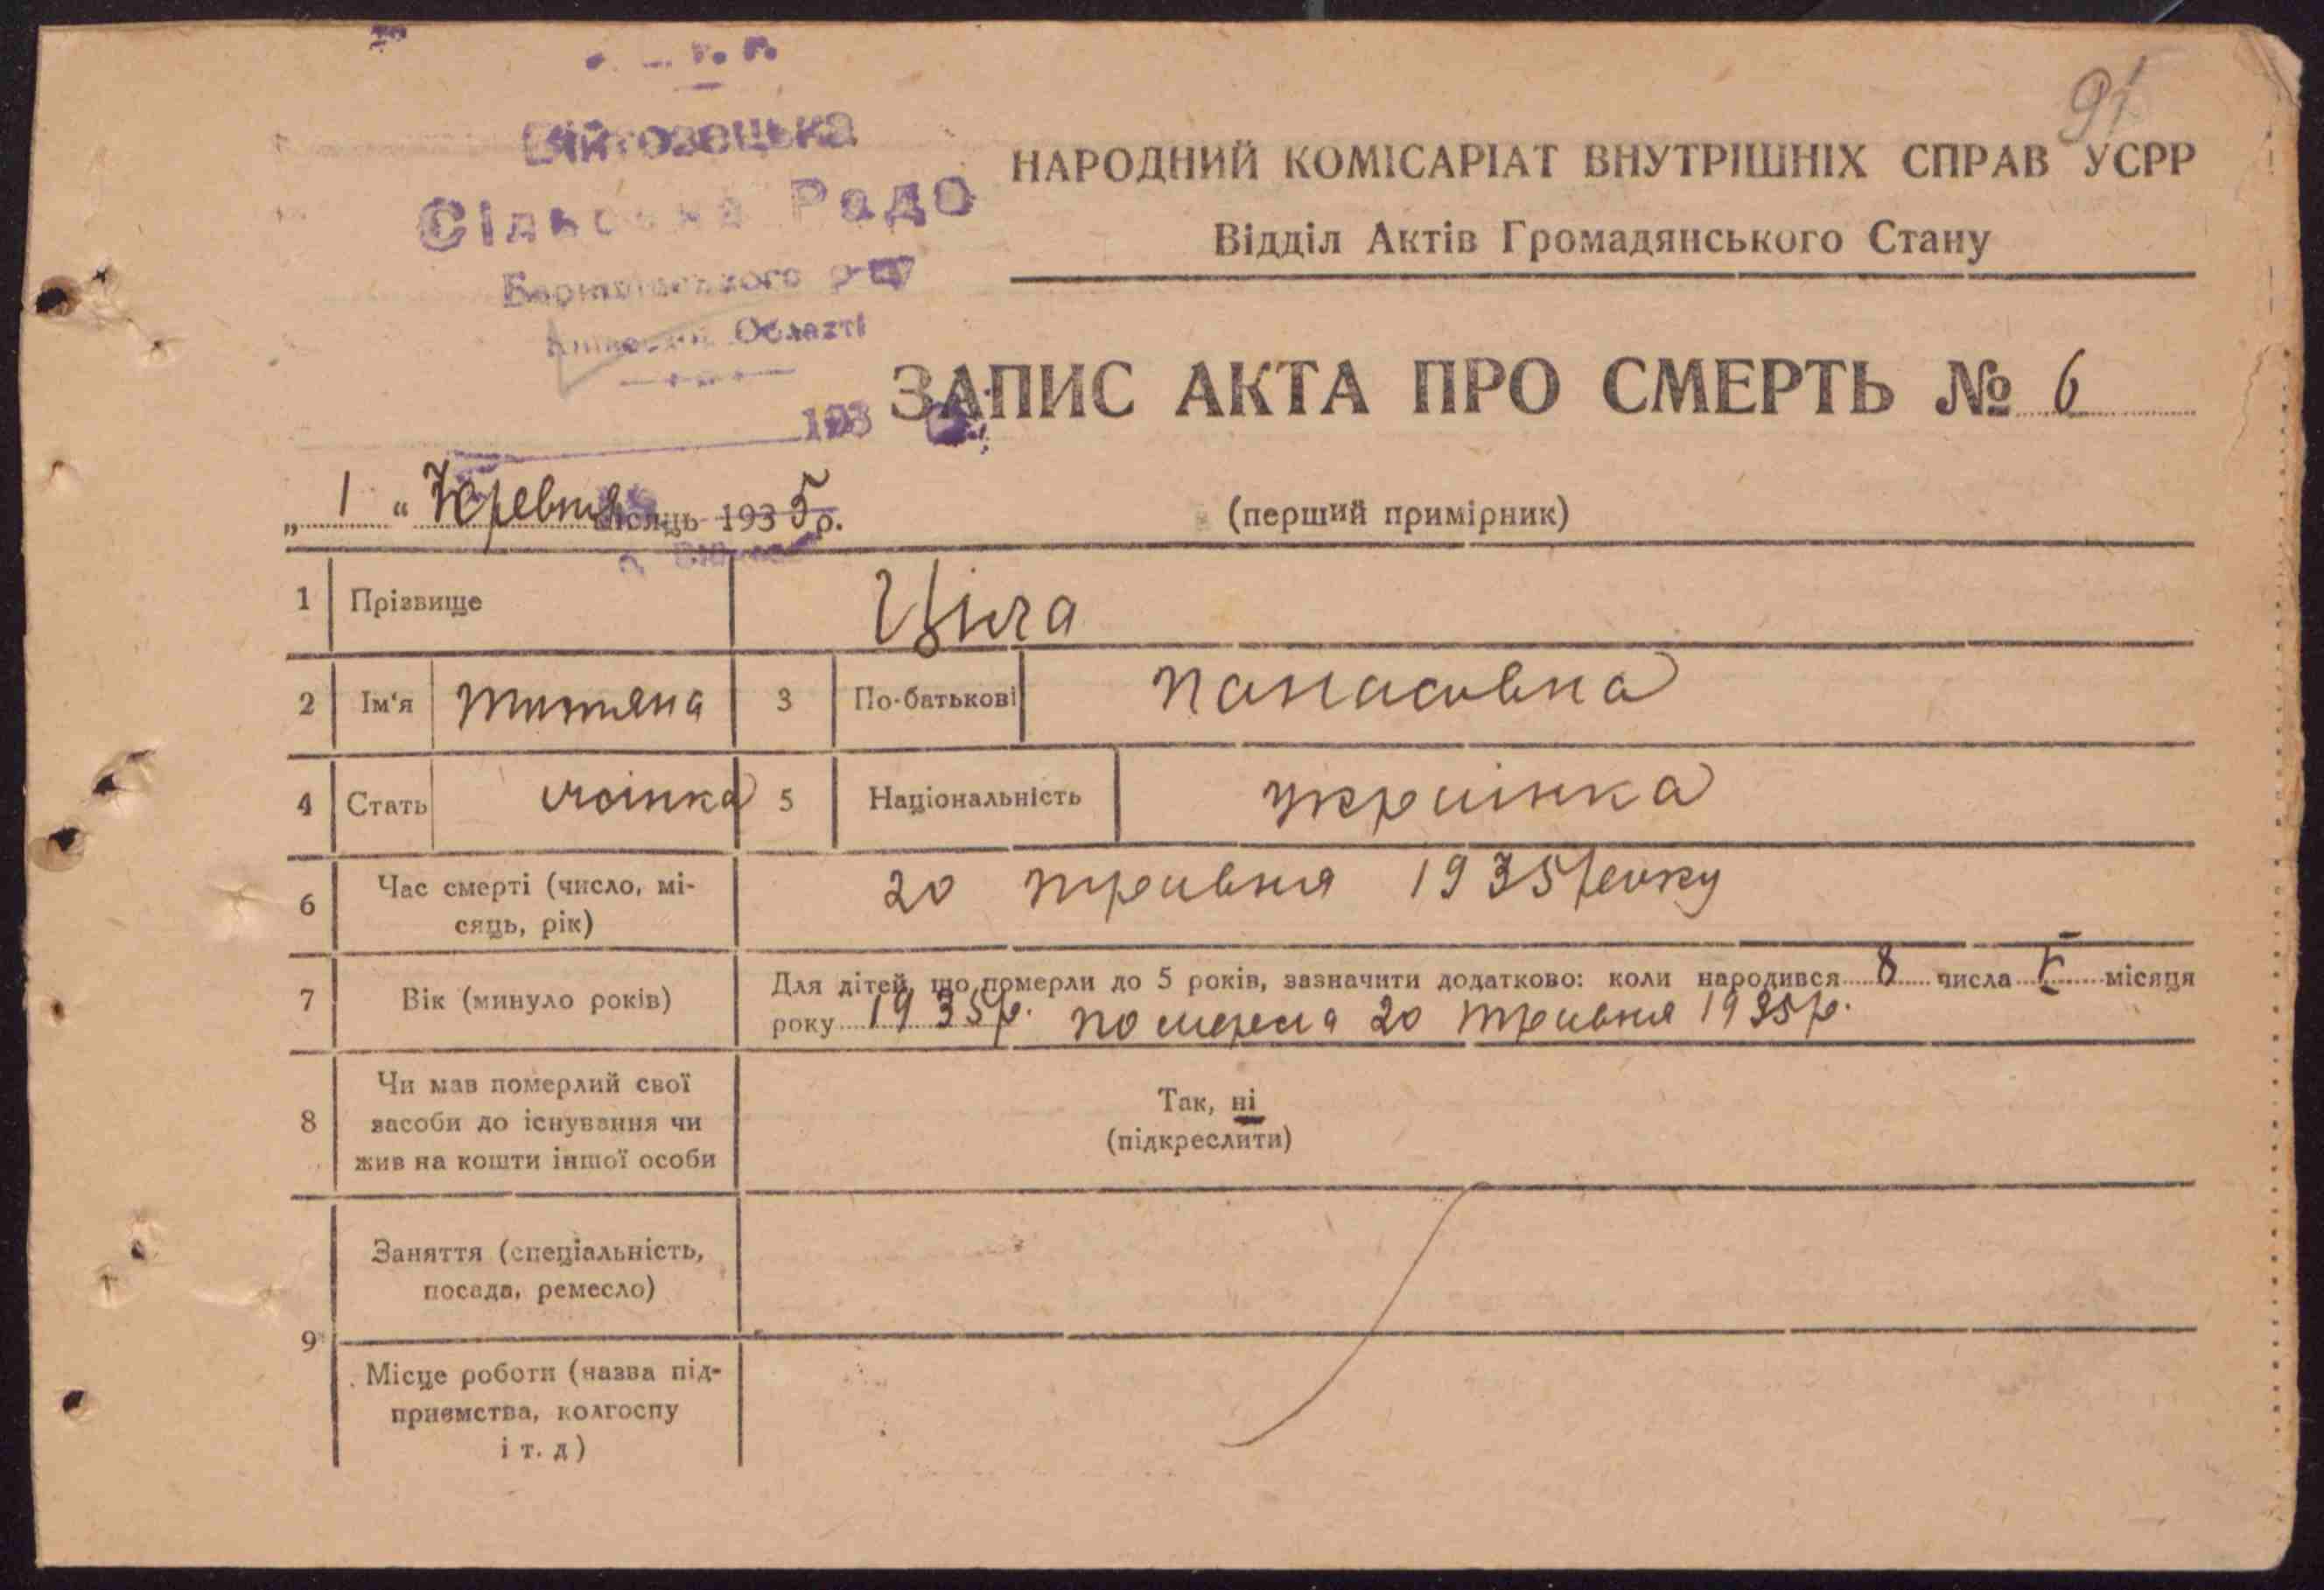 91
Війтовецька
Сільська Рада
Області
193
НАРОДНИЙ КОМІСАРІАТ ВНУТРІШНІХ СПРАВ УСРР
Відділ Актів Громадянського Стану
ЗАПИС АКТА ПРО СМЕРТЬ № 6
„ 1 “ Червня місяць 1935 р.
(перший примірник)
1 Прізвище Ціла
2 Ім'я Титяна 3 По-батькові Панасовна
4 Стать жінка 5 Національність українка
6 Час смерті (число, мі-
сяць, рік) 20 травня 1935 року
7 Вік (минуло років) Для дітей, що померли до 5 років, зазначити додатково: коли народився 8 числа V місяця
року 1935 р. померла 20 травня 1935 р.
8 Чи мав померлий свої
засоби до існування чи
жив на кошти іншої особи
Так, ні
(підкреслити)
9 Заняття (спеціальність,
посада, ремесло)
Місце роботи (назва під-
приємства, колгоспу
і т. д)